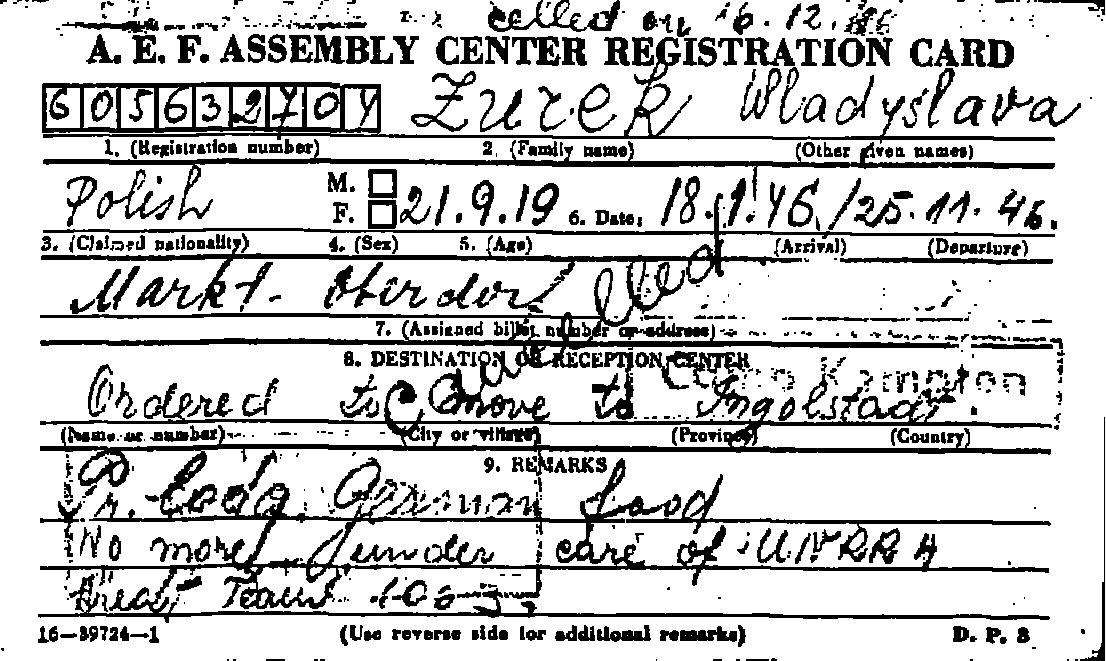 called on 16.12.46
A. E. F. ASSEMBLY CENTER REGISTRATION CARD
605632704 Zurek Wladyslava
1. (Registration number) 2. (Family name) (Other given names)
Polish M. F. 21.9.19 6. Date: 18.1.46. / 25.11.46.
3. (Claimed nationality) 4. (Sex) 5. (Age) (Arrival) (Departure)
Markt-Oberdorf
7. (Assigned billet number or address)
Cancelled
8. DESTINATION OR RECEPTION CENTER
Kempten
Ordered to move to Ingolstadt.
(Name or number) (City or village) (Province) (Country)
9. REMARKS
German food
No more under care of UNRRA
Area Team
16—39724—1 (Use reverse side for additional remarks) D. P. 3